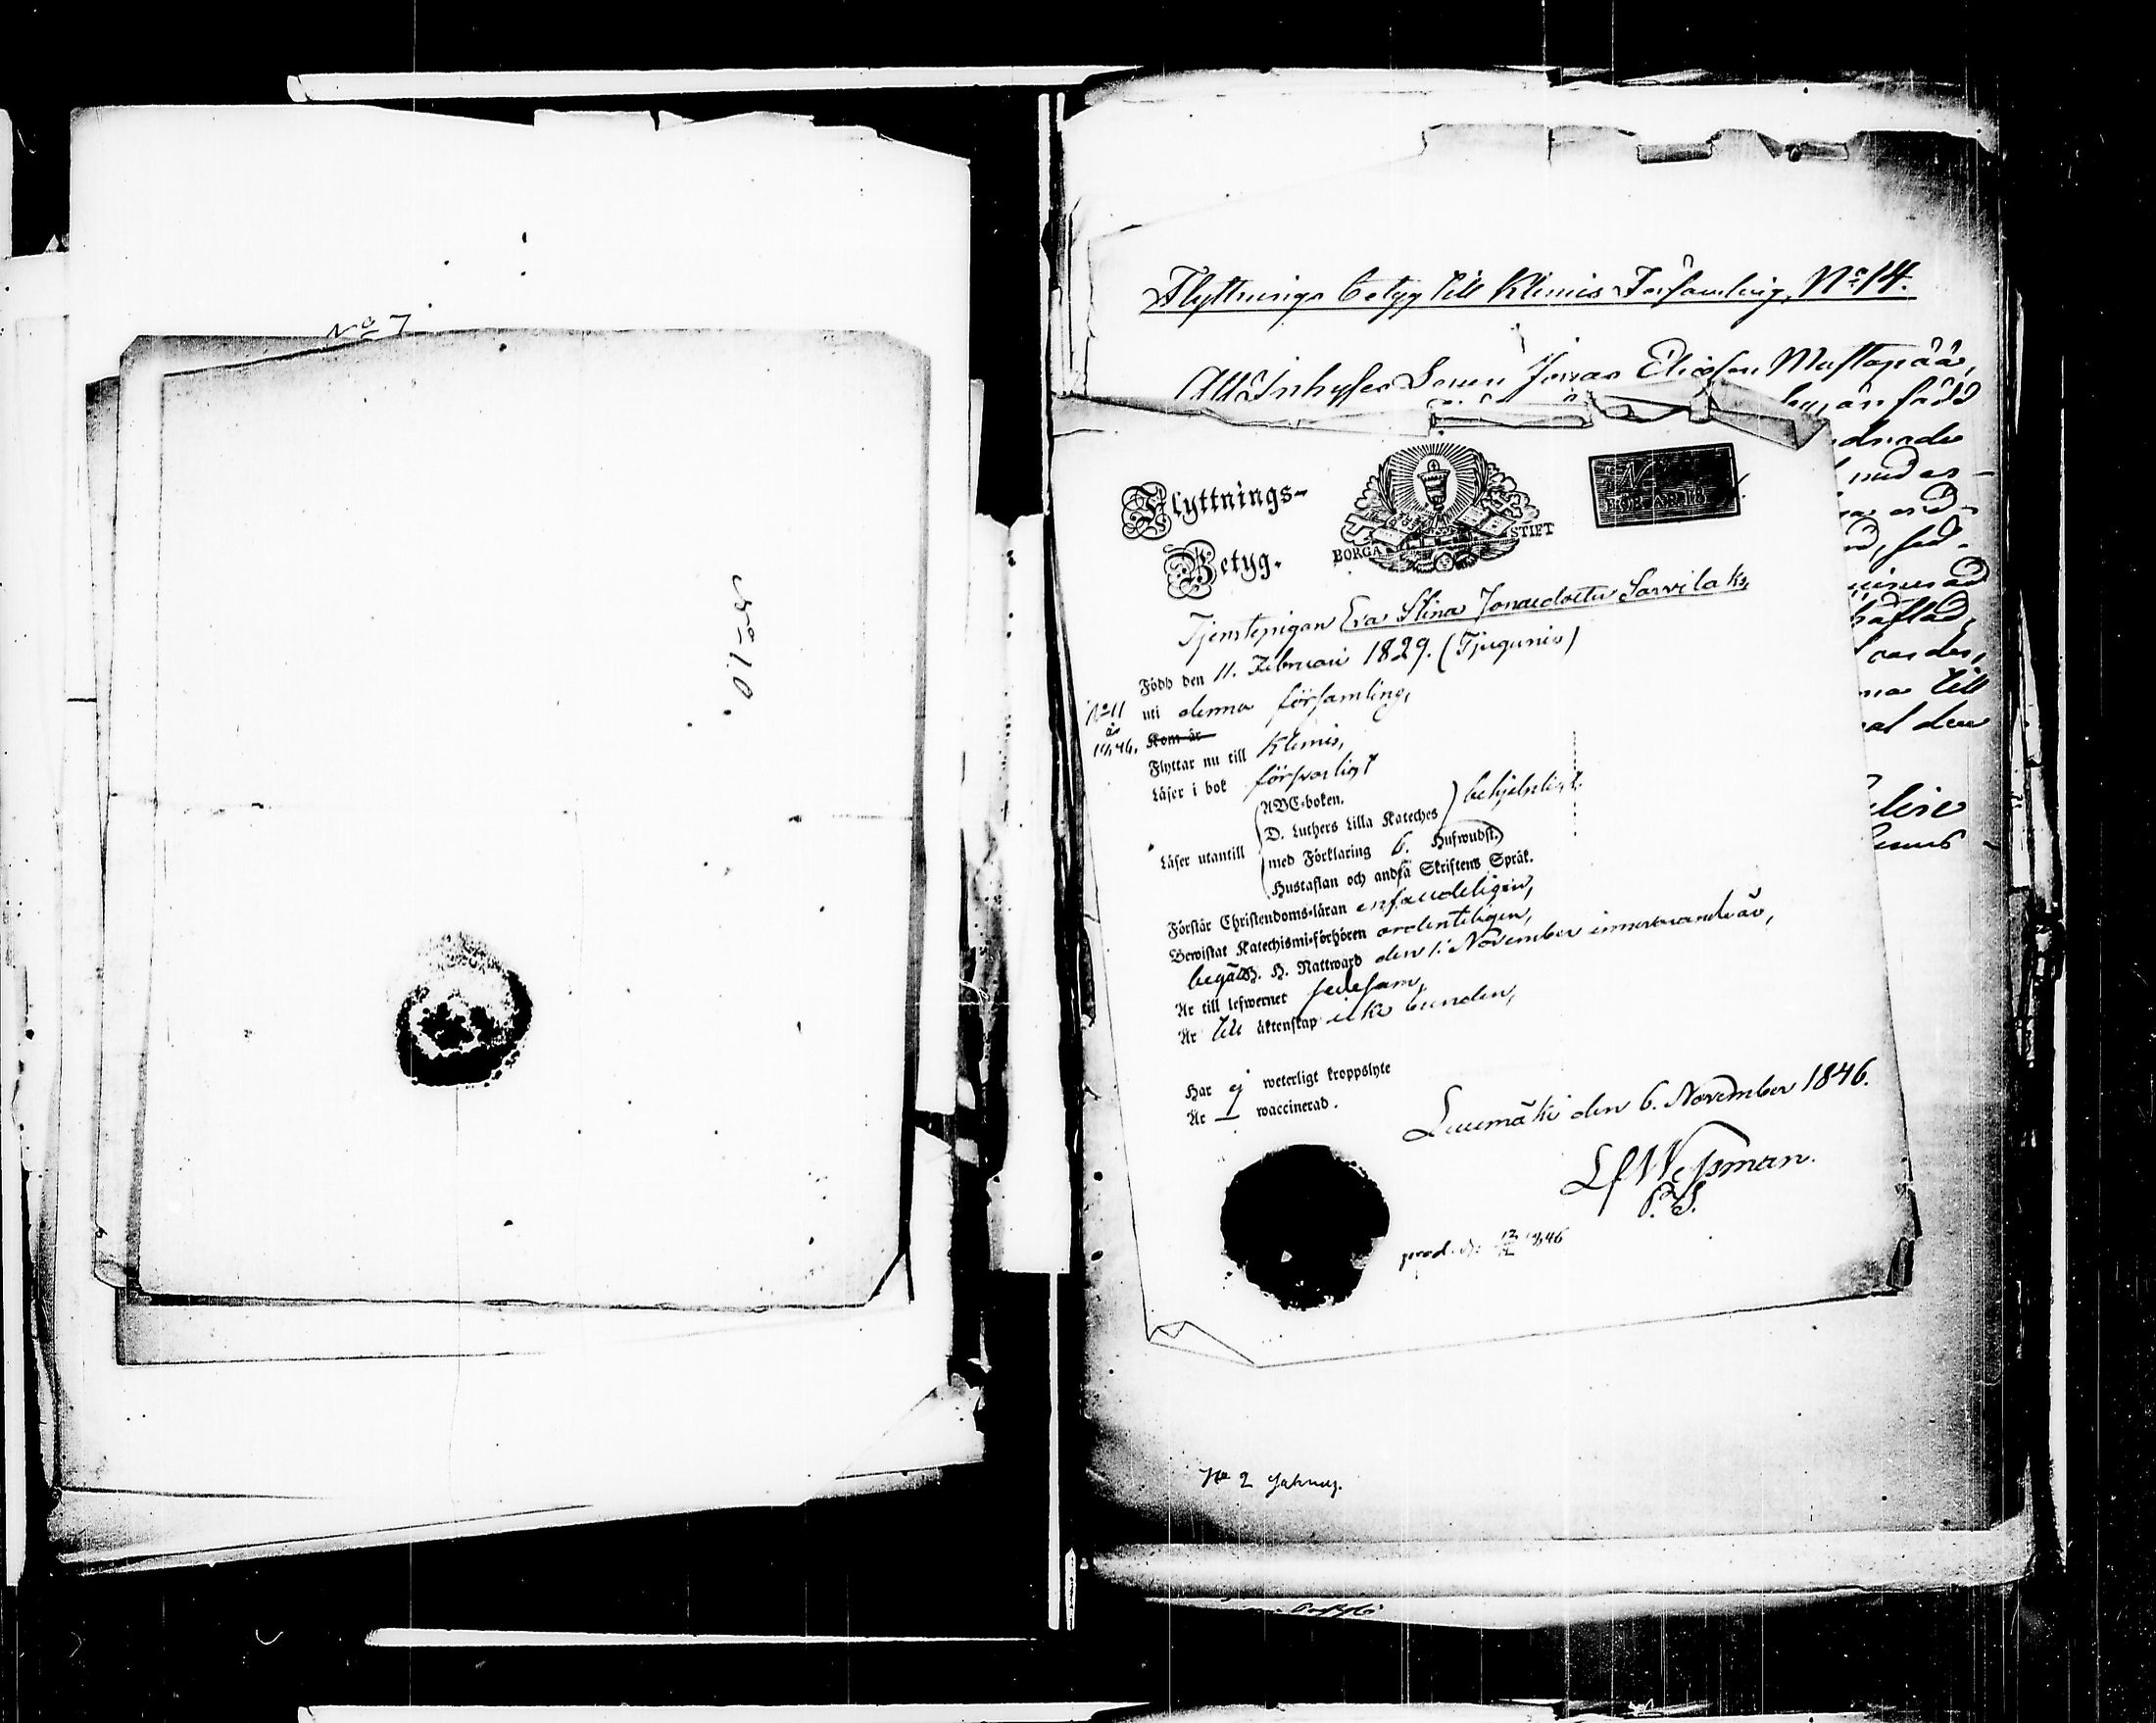 No 7
No 10.
Flyttnings betyg till Klemis Församling, No 14.
Att Inhyses Sonen Jonas Eliasson Mustapää,
är född
med
till
den
Flyttnings-
Betyg.
BORGÅ STIFT
N
FÖR ÅR 18
Tjenstepigan Eva Stina Jonaedotter Sarvilaks,
Född den 11. Februari 1829. (Tjugunio)
No 11
år
1846.
uti denna församling,
Kom år
Flyttar nu till Klimis,
Läser i bok försvarligt
Läser utantill
ABC-boken.
D. Luthers Lilla Kateches
med Förklaring 6. Hufwudst.
Hustaflan och andra Skriftens Språk.
behjelpligt.
Förstår Christendoms-läran enfaldeligen,
Bewistat Katechismi-förhören ordenteligen,
begått H. H. Nattward den 1. November innewarande år,
Är till lefwernet sedesam,
Är till äktenskap icke bunden,
Har ej weterligt kroppslyte
Är — waccinerad.
Luumäki den 6. November 1846.
Wessman.
P. S.
prod. d. 1846
No 2